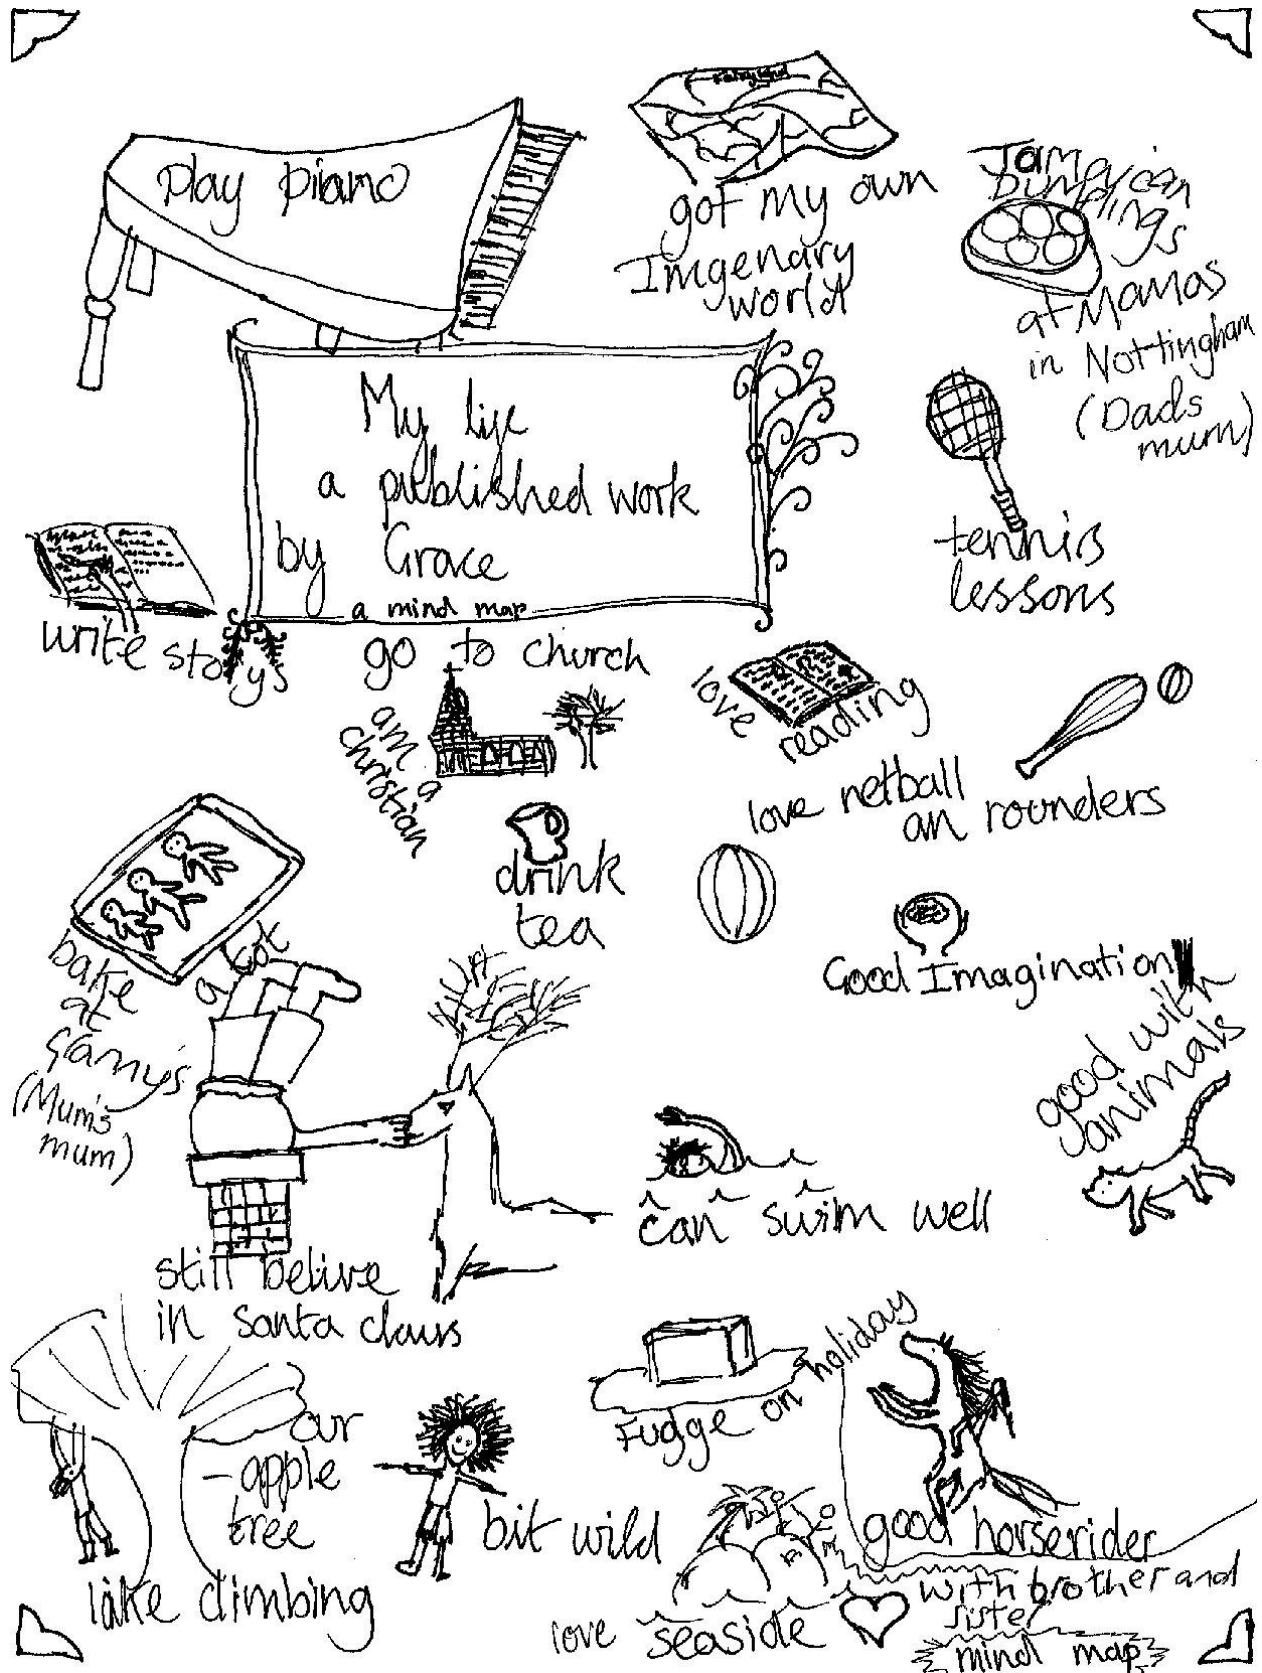 play piano
Fairyland
got my own
Imgenary
world
Jamaican
Dumplings
at Mamas
in Nottingham
(Dads
mum)
My life
a published work
by Grace
a mind map
tennis
lessons
write storys
go to church
am a
christian
love
reading
love netball
an rounders
drink
tea
bake a lot
at
Granny's
(Mum's
mum)
Good Imagination
good with
animals
can swim well
still belive
in santa claus
Fudge on holiday
our
apple
tree
like climbing
bit wild
good horserider
love seaside
with brother and
sister
mind map